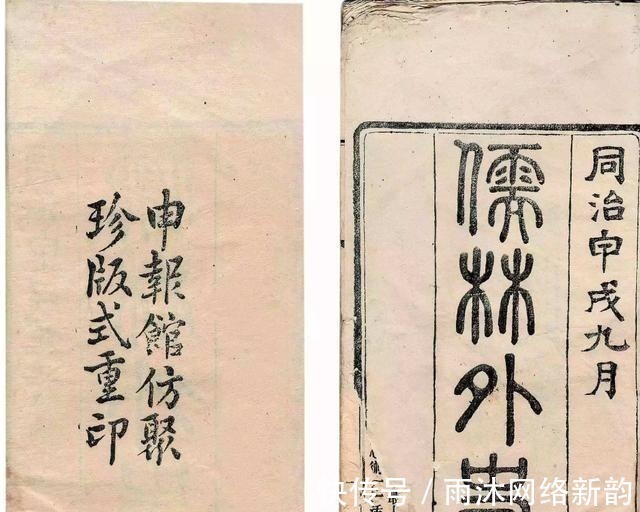 申報館仿聚
珍版式重印
同治甲戌九月
儒林外史
快传号 / 雨沐网络新韵